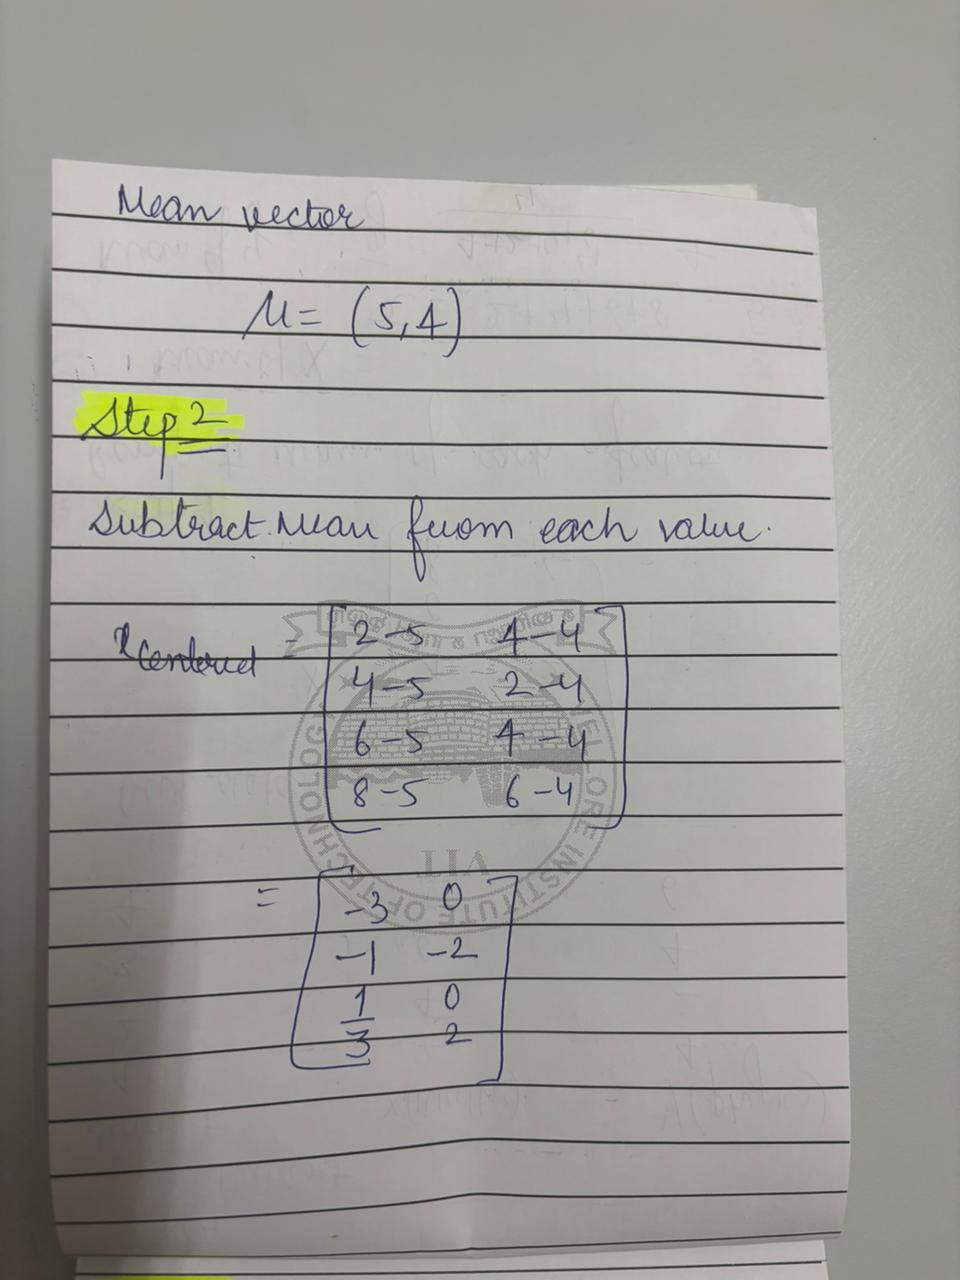 Mean vector
μ = (5,4)
Step 2
Subtract Mean from each value.
x centered = [2-5 4-4
4-5 2-4
6-5 4-4
8-5 6-4]
= [-3 0
-1 -2
1 0
3 2]
VIT
VELLORE INSTITUTE OF TECHNOLOGY